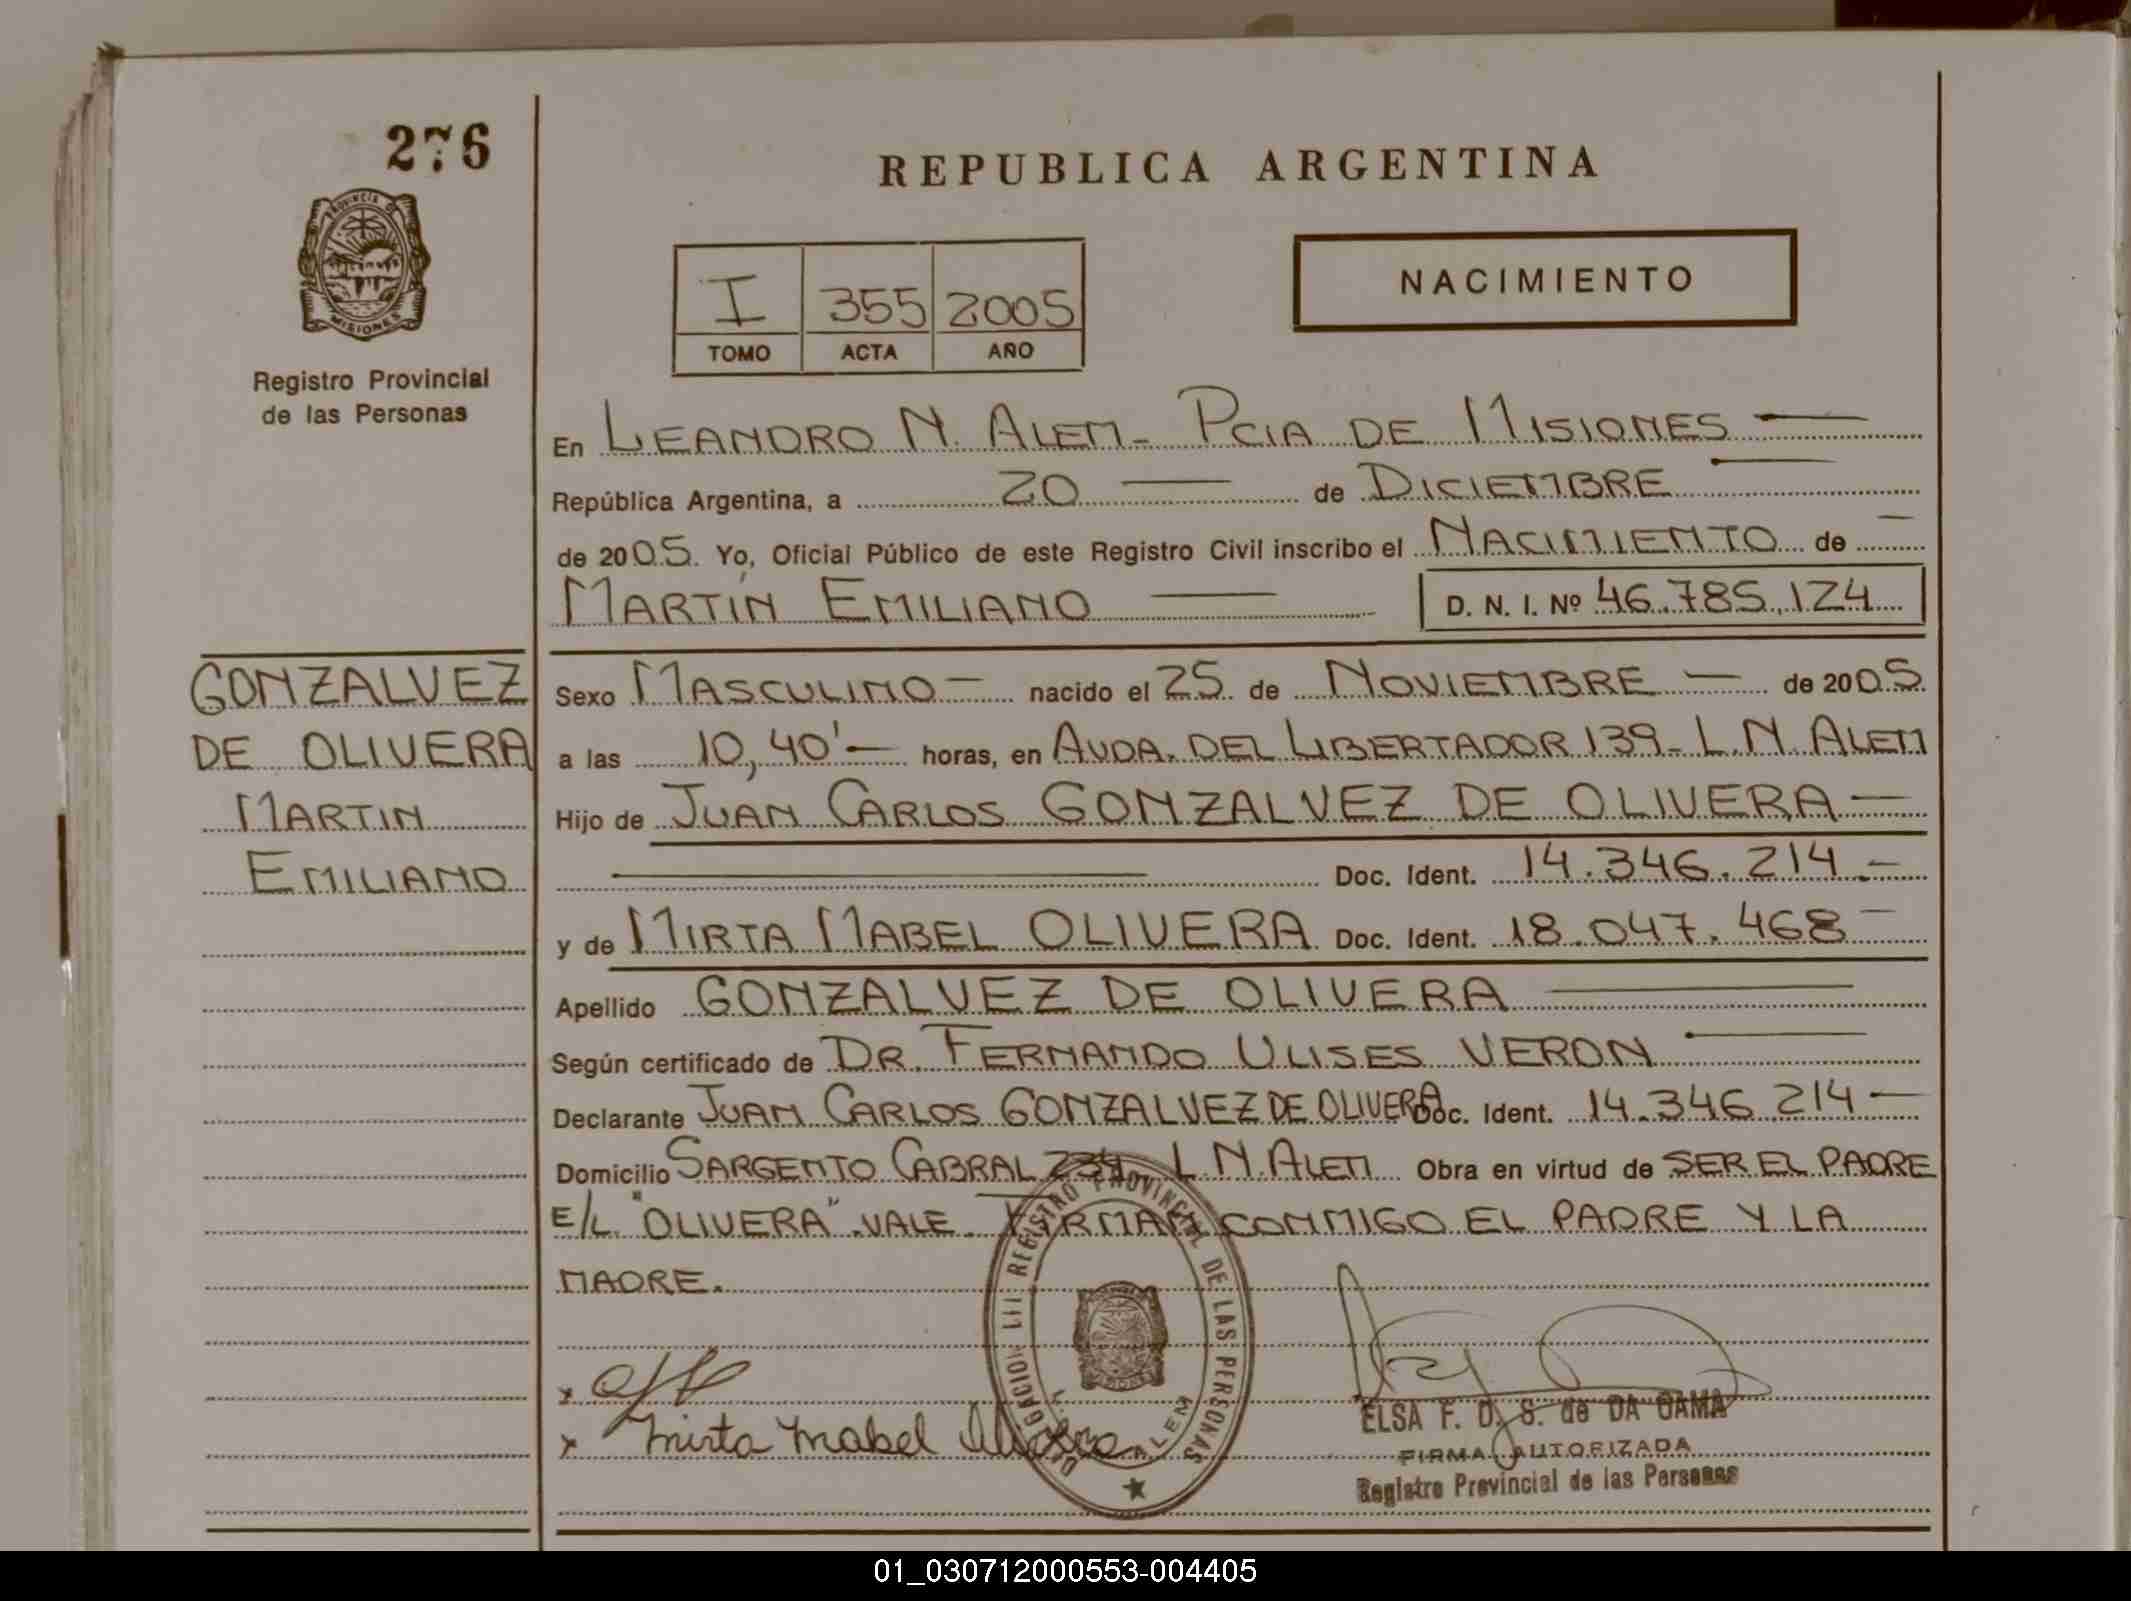 276
PROVINCIA DE
MISIONES
Registro Provincial
de las Personas
GONZALVEZ
DE OLIVERA
MARTIN
EMILIANO
REPUBLICA ARGENTINA
I 355 2005
TOMO ACTA AÑO
NACIMIENTO
En LEANDRO N. ALEM - PCIA DE MISIONES —
República Argentina, a 20 — de DICIEMBRE —
de 2005. Yo, Oficial Público de este Registro Civil inscribo el NACIMIENTO de —
MARTÍN EMILIANO — D. N. I. Nº 46.785.124
Sexo MASCULINO — nacido el 25 de NOVIEMBRE — de 2005
a las 10,40' — horas, en AVDA. DEL LIBERTADOR 139 - L.N. ALEM
Hijo de JUAN CARLOS GONZALVEZ DE OLIVERA —
— Doc. Ident. 14.346.214.-
y de MIRTA MABEL OLIVERA Doc. Ident. 18.047.468 —
Apellido GONZALVEZ DE OLIVERA —
Según certificado de DR. FERNANDO ULISES VERON —
Declarante JUAN CARLOS GONZALVEZ DE OLIVERA Doc. Ident. 14.346.214 —
Domicilio SARGENTO CABRAL 234 L.N. ALEM Obra en virtud de SER EL PADRE
E/L "OLIVERA". VALE. FIRMAN CONMIGO EL PADRE Y LA
MADRE.
REGISTRO PROVINCIAL DE LAS PERSONAS
ALEM
x
x Mirta Mabel Olivera
ELSA F. D. S. de DA GAMA
FIRMA AUTORIZADA
Registro Provincial de las Personas
01_030712000553-004405